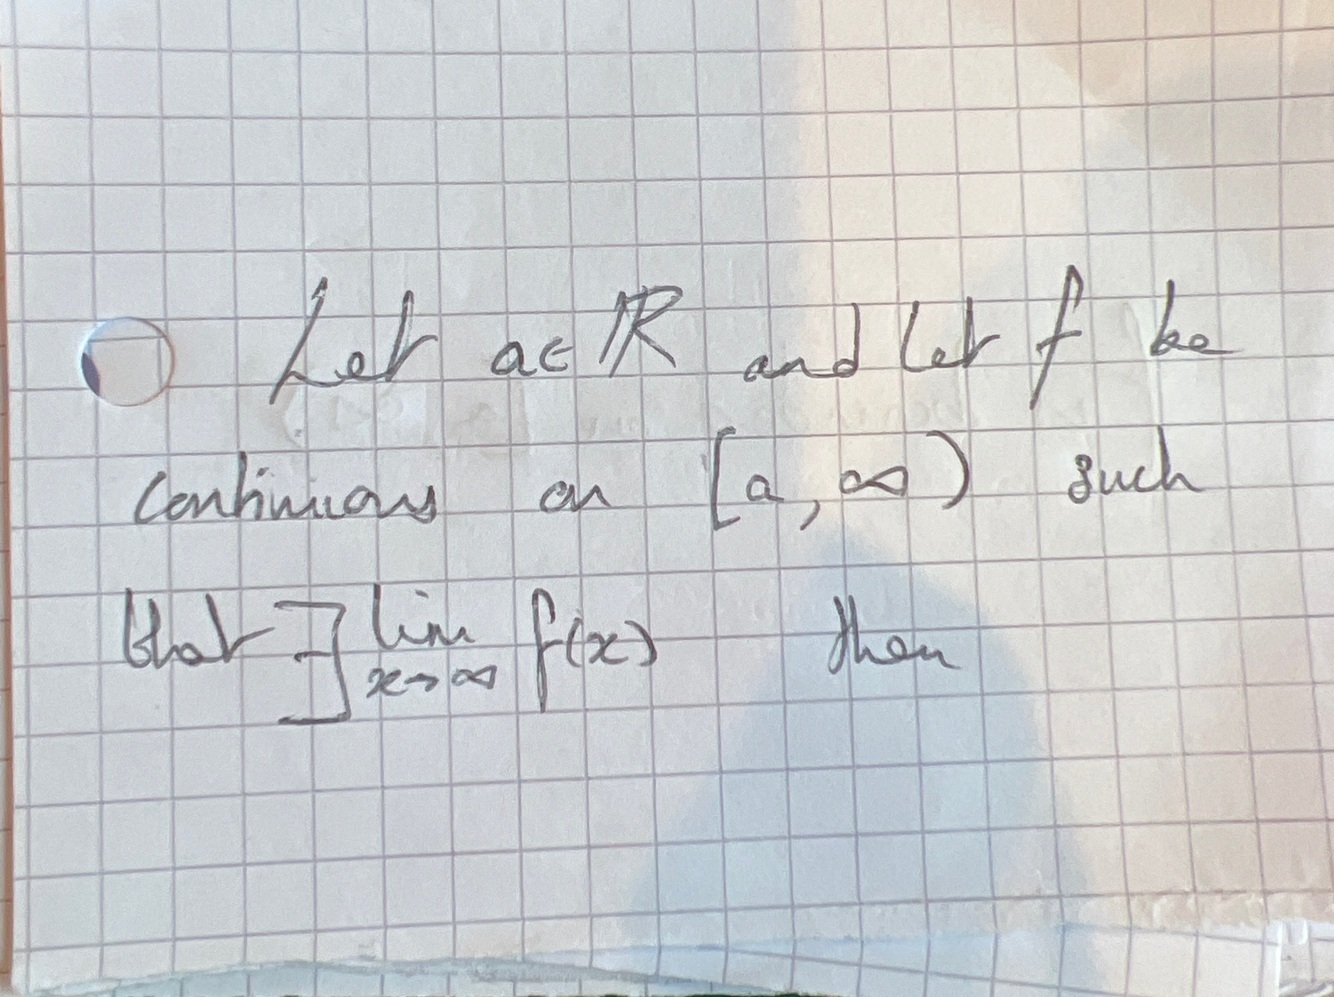 Let a∈ℝ and let f be
continuous on [a, ∞) such
that ∃ lim x→∞ f(x) then